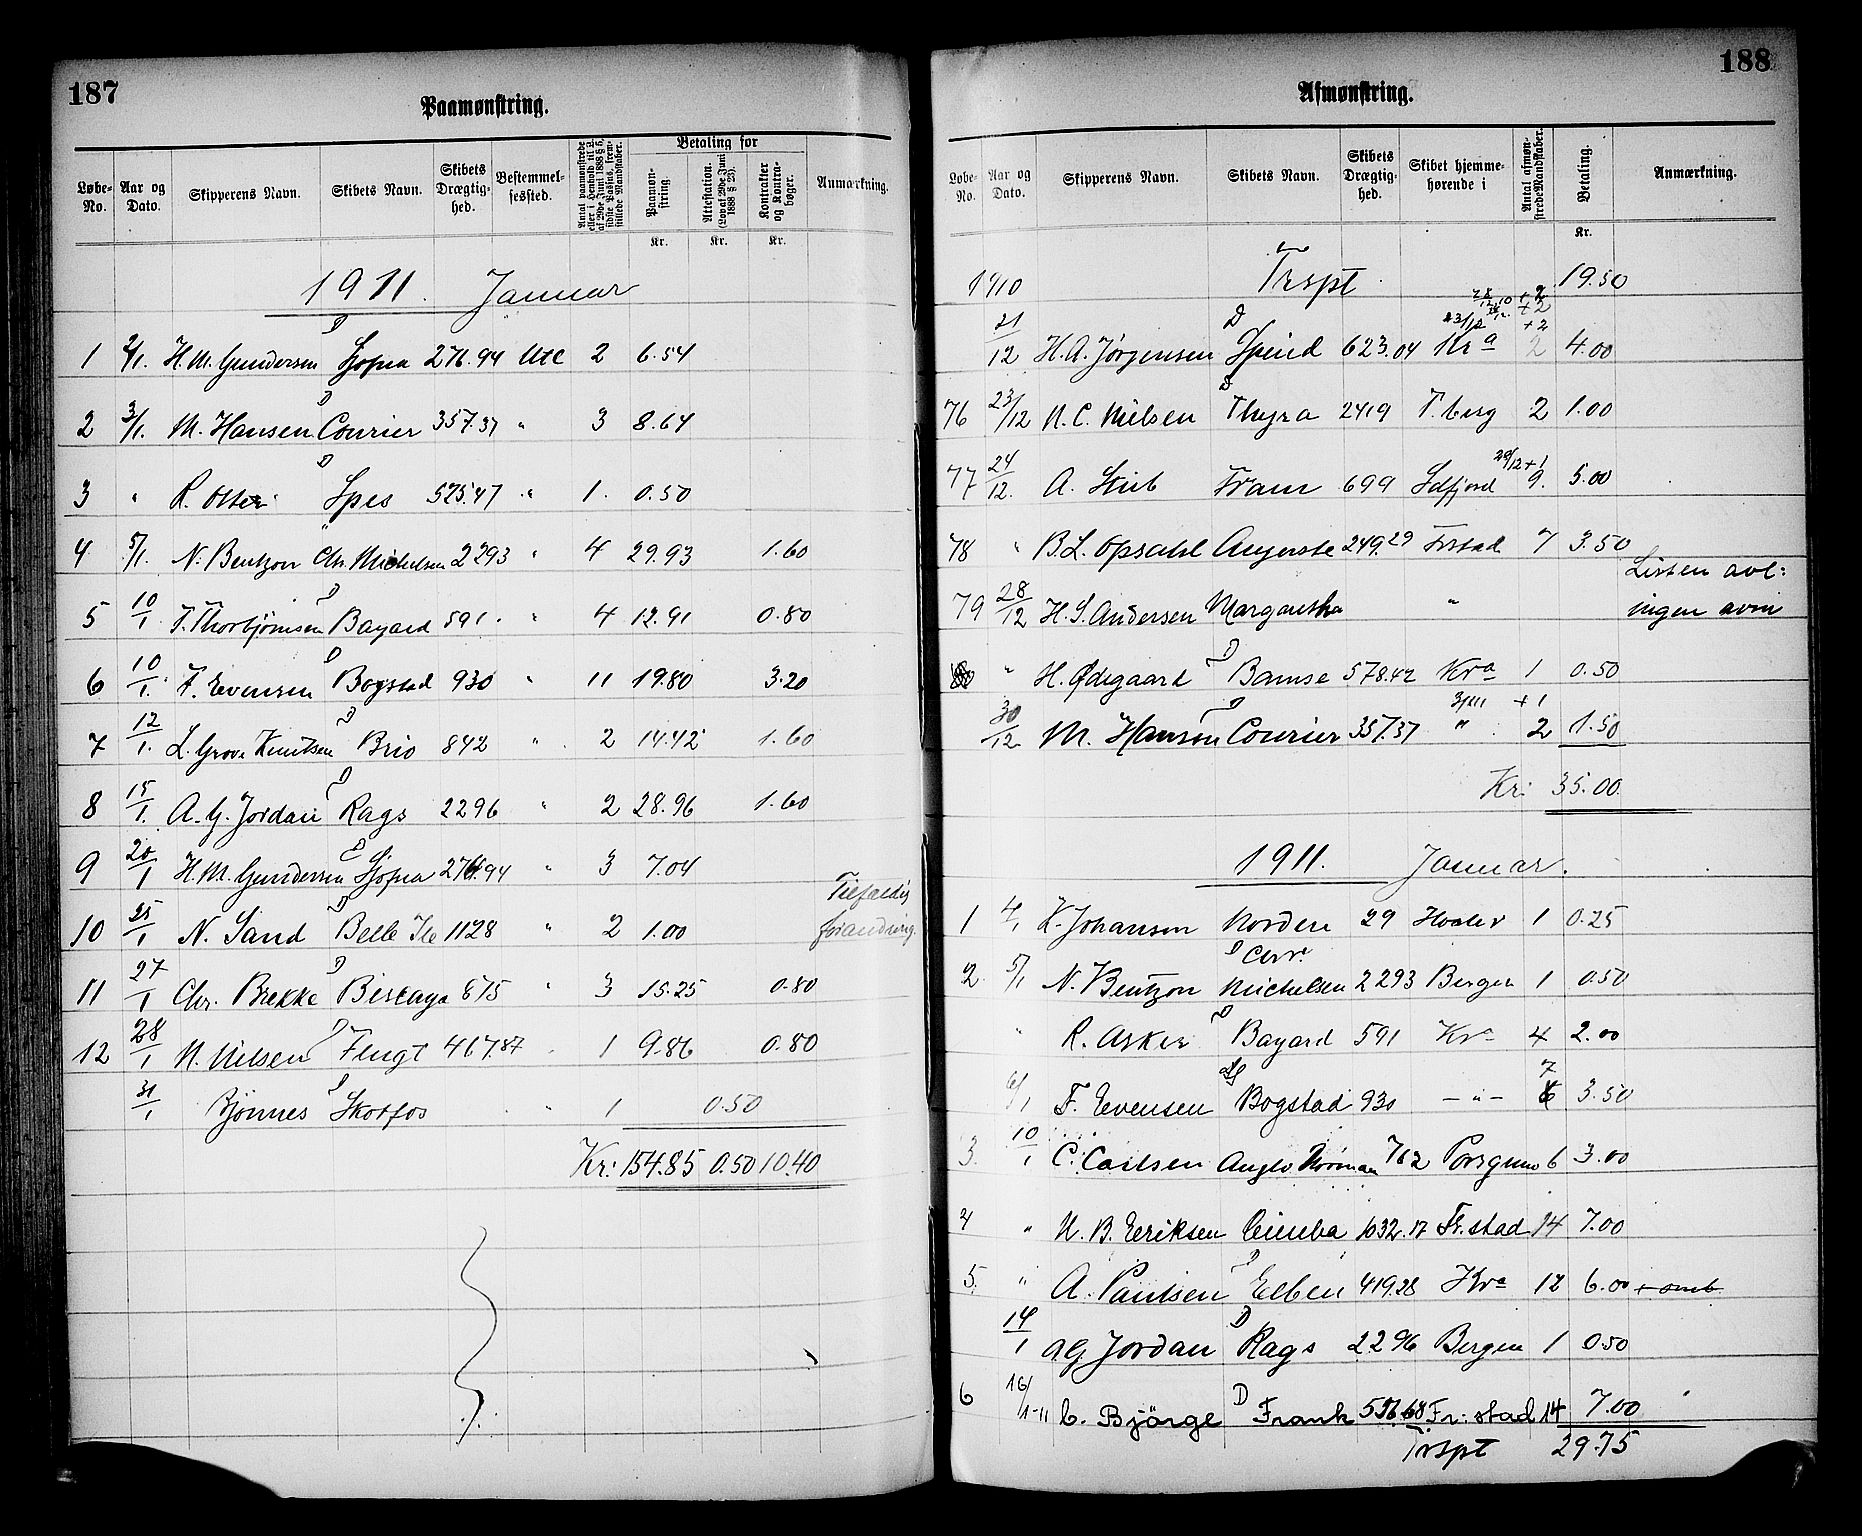 187
Paamønstring.
Løbe-No. Aar og Dato. Skipperens Navn. Skibets Navn. Skibets Drægtighed. Bestemmelsessted. Antal paamønstrede eller i Henhold til L. af 29de Juni 1888 § 6, sidste Passus, fremstillede Mandskaber. Betaling for Paamønstring. Kr. Attestation. (Lov af 29de Juni 1888 § 23). Kr. Kontrakter og Kontrabøger. Kr. Anmærkning.
1911. Januar
1 2/1. H. M. Gundersen D Sjofna 271.94 Utl 2 6.54
2 3/1. M. Hansen D Courier 357.37 " 3 8.64
3 " R. Otter D Spes 575.47 " 1. 0.50
4 5/1. N. Bentzon " Chr. Michelsen 2293 " 4 29.93 1.60
5 10/1 T. Thorbjørnsen D Bayard 591. " 4 12.91 0.80
6 10/1. F. Evensen D Bogstad 930 " 11 19.80 3.20
7 12/1. L. Grove Knutsen D Brio 842 " 2 14.42 1.60
8 15/1. A. G. Jordan D Rags 2296 " 2 28.96 1.60
9 20/1 H. M. Gundersen D Sjofna 271.94 " 3 7.04
10 25/1 N. Sand D Belle Ile 1128 " 2 1.00 Tilfældig forandring.
11 27/1 Chr. Brekke D Biscaya 875 " 3 15.25 0.80
12 28/1 N. Nilsen D Flugt 467.87 " 1 9.86 0.80
31/1 Bjønnes D Skotfos " 1 0.50
Kr: 154.85 0.50 10.40
188
Afmønstring.
Løbe-No. Aar og Dato. Skipperens Navn. Skibets Navn. Skibets Drægtighed. Skibet hjemmehørende i Antal afmønstrede Mandskaber. Betaling. Kr. Anmærkning.
1910 Trspt 19.50
21/12 H. A. Jørgensen D Speid 623.04 23/12 Kra +2 +2 +2 2 4.00
76 23/12 N. C. Nielsen D Thyra 2419 T.berg 2 1.00
77 24/12. A. Stub Fram 699 Idfjord 29/12 +1 9. 5.00
78 " B. L. Opsahl Auguste 249.29 Frstad 7 3.50
79 28/12 H. S. Andersen Margaretha " Listen avl: ingen avm
" H. Ødegaard D Bamse 578.42 Kra 1 0.50
30/12 M. Hanson D Courier 357.37 " +1 2 1.50
Kr: 35.00
1911. Januar.
1 4/1 K. Johanson Norden 29 Hvaler 1 0.25
2 5/1 N. Bentzon D Chr. Michelsen 2293 Bergen 1 0.50
" R. Asker D Bayard 591 Kra 4 2.00
6/1 F. Evensen D Bogstad 930 - " - 7 3.50
3. 10/1 C. Carlsen Anglo Norman 762 Porsgrun 6 3.00
4 " N. B. Eriksen Cimba 1032.17 Fr.stad 14 7.00
5. " A. Paulsen D Elben 419.28 Kra 12 6.00 + omb
14/1 A G Jordan D Rags 2296 Bergen 1 0.50
6 16/1-11 C. Bjørge D Frank 556.68 Fr.stad 14 7.00
Trspt 29.75